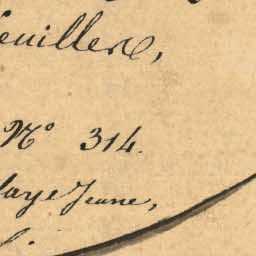 euillere,
N° 314.
laye Jeune,